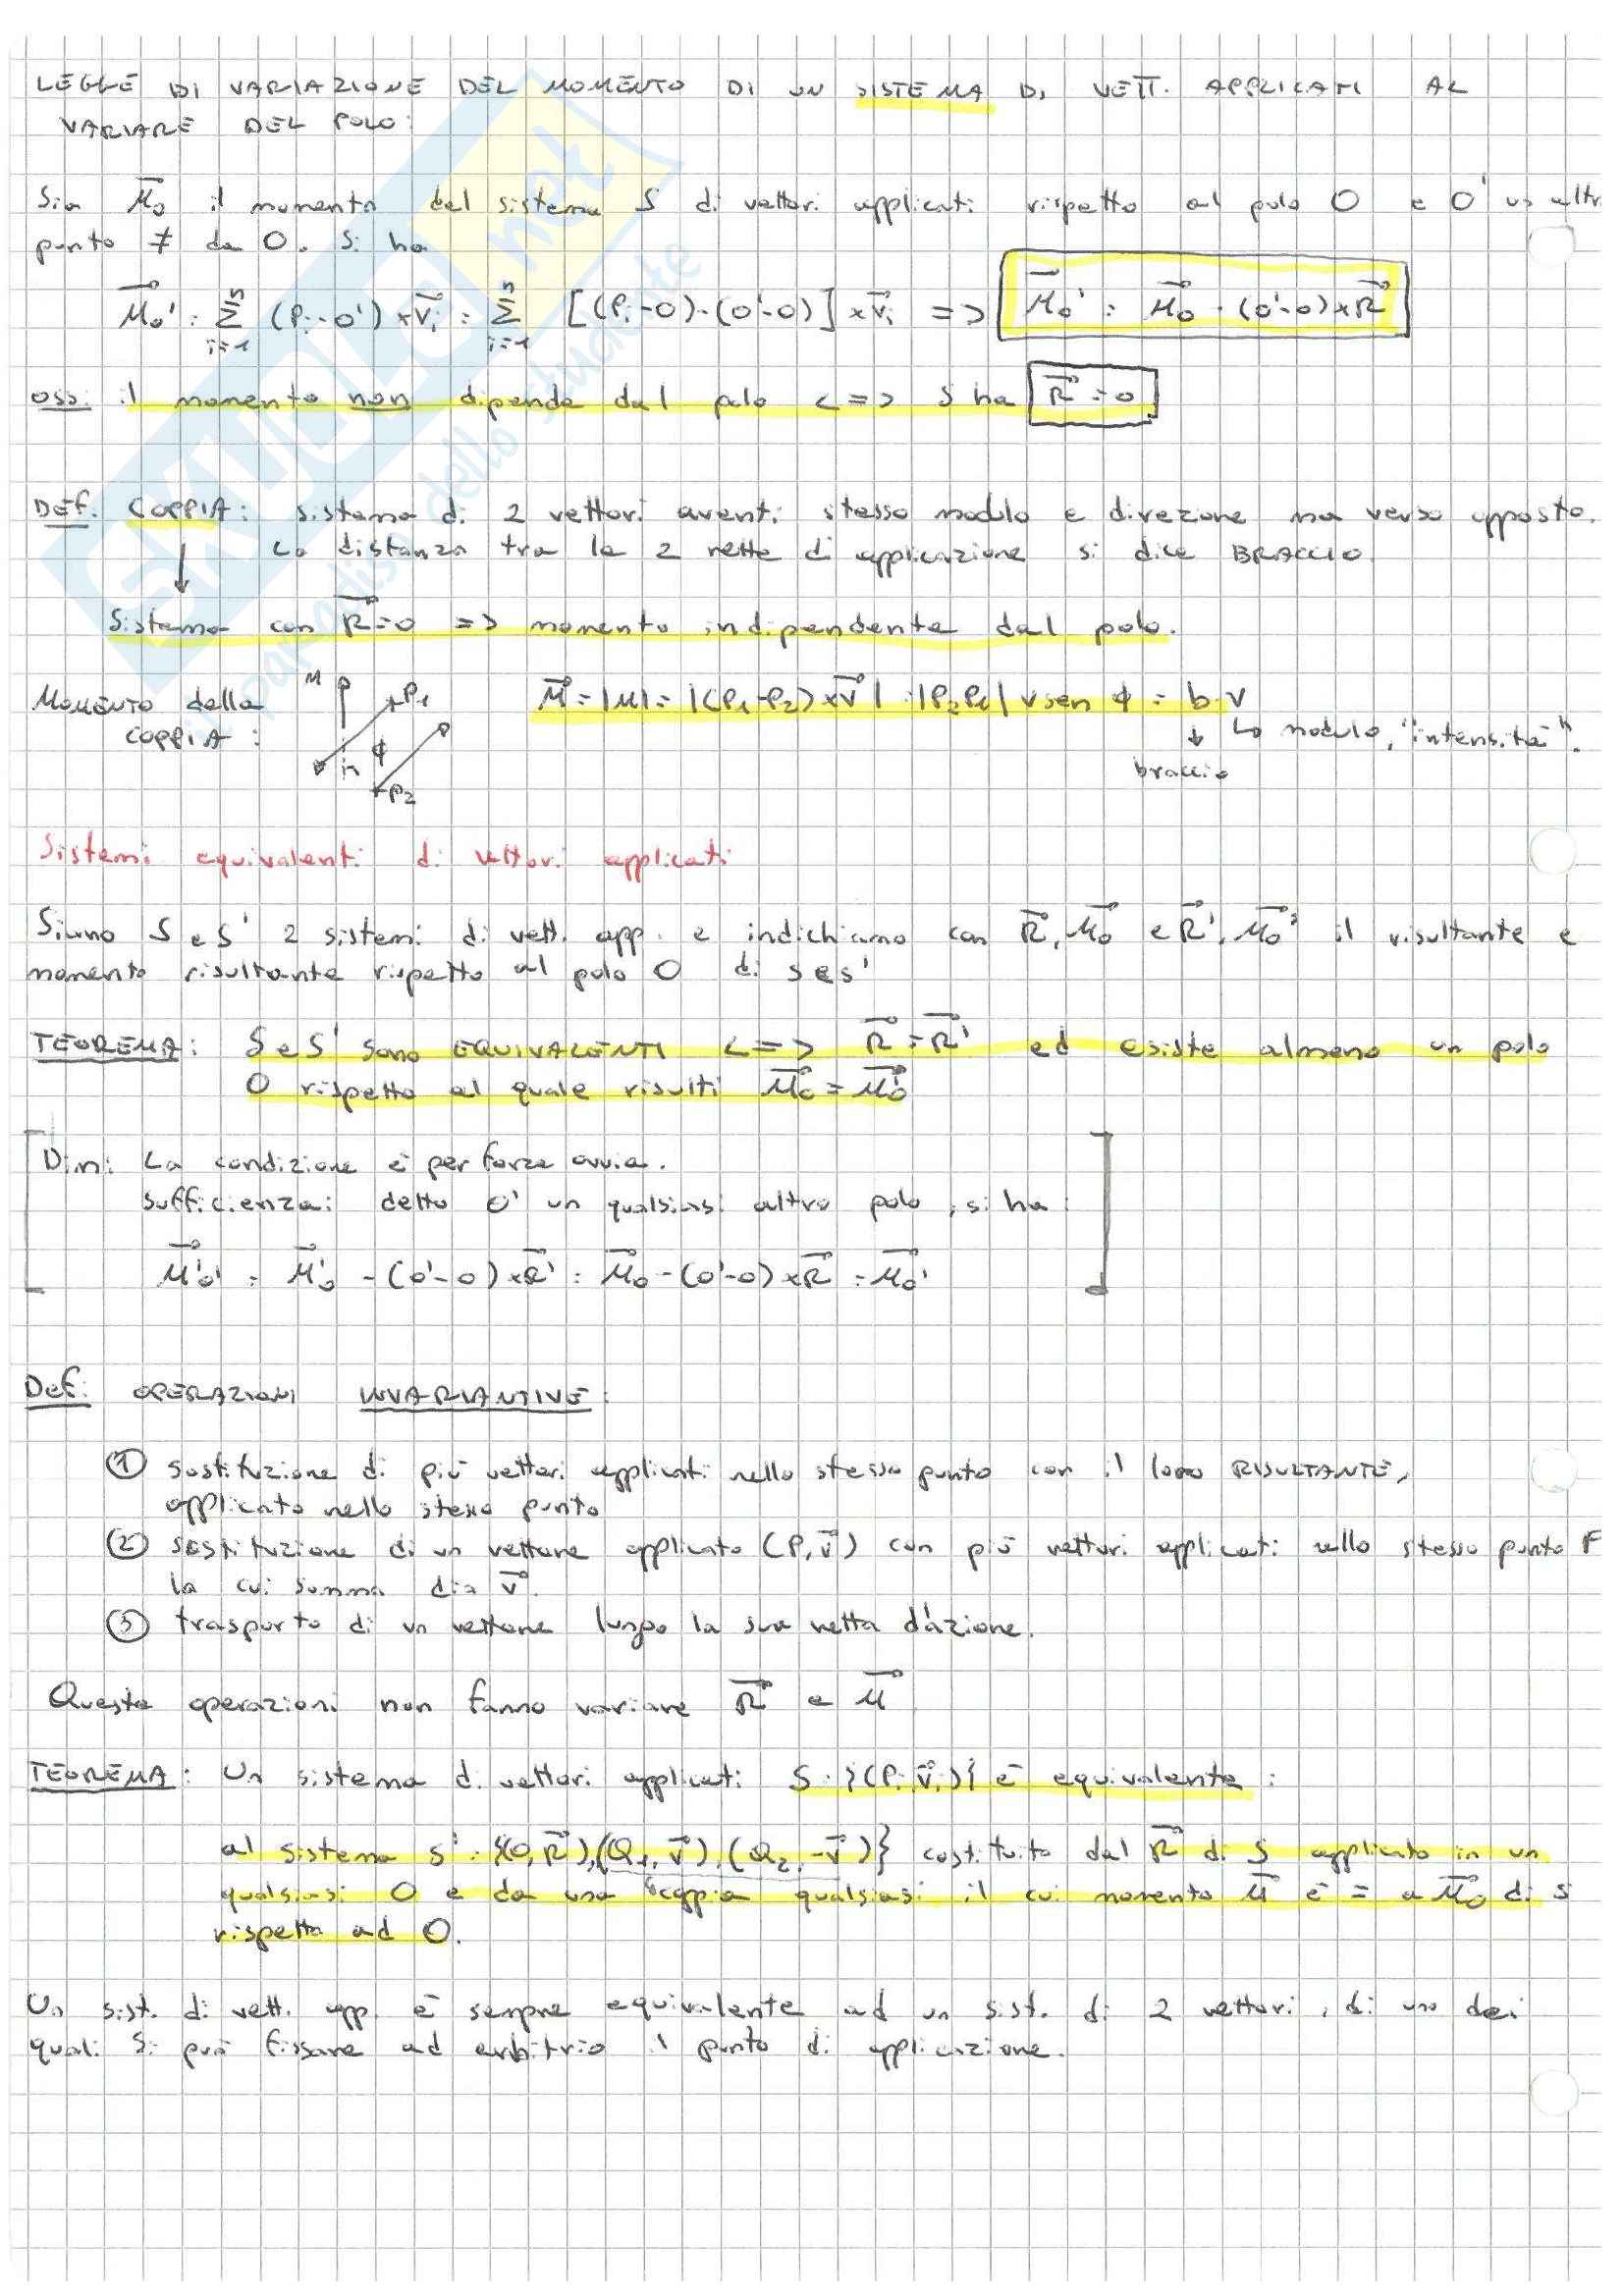 LEGGE DI VARIAZIONE DEL MOMENTO DI UN SISTEMA DI VETT. APPLICATI AL
VARIARE DEL POLO:
Sia M⃗o il momento del sistema S di vettori applicati rispetto al polo O e O' un altr
punto ≠ da O. Si ha
M⃗o' = Σ_{i=1}^{n} (Pi-O') × v⃗i = Σ_{i=1}^{n} [(Pi-O)-(O'-O)] × v⃗i => M⃗o' = M⃗o - (O'-O) × R⃗
OSS: il momento non dipende dal polo <=> S ha R⃗ = 0
DEF. COPPIA: sistema di 2 vettori aventi stesso modulo e direzione ma verso opposto.
La distanza tra le 2 rette di applicazione si dice BRACCIO.
Sistema con R⃗=0 => momento indipendente dal polo.
MOMENTO della COPPIA:
M P1 ϕ h P2
M⃗ = |M| = |(P1-P2) × v⃗| = |P2P1| v sen ϕ = b·v
↳ modulo, "intensità".
braccio
Sistemi equivalenti di vettori applicati
Siano S e S' 2 sistemi di vett. app. e indichiamo con R⃗, M⃗o e R⃗', M⃗o' il risultante e
momento risultante rispetto al polo O di S e S'
TEOREMA: S e S' sono EQUIVALENTI <=> R⃗ = R⃗' ed esiste almeno un polo
O rispetto al quale risulti M⃗o = M⃗'o
Dim: La condizione è per forza ovvia.
Sufficienza: detto O' un qualsiasi altro polo, si ha:
M⃗'o' = M⃗'o - (O'-O) × R⃗' = M⃗o - (O'-O) × R⃗ = M⃗o'
Def: OPERAZIONI INVARIANTIVE:
① sostituzione di più vettori applicati nello stesso punto con il loro RISULTANTE,
applicato nello stesso punto
② sostituzione di un vettore applicato (P, v⃗) con più vettori applicati nello stesso punto P
la cui somma dia v⃗.
③ trasporto di un vettore lungo la sua retta d'azione.
Queste operazioni non fanno variare R⃗ e M⃗
TEOREMA: Un sistema di vettori applicati S = {(Pi, v⃗i)} è equivalente:
al sistema S' = {(O, R⃗), (Q1, v⃗), (Q2, -v⃗)} costituito dal R⃗ di S applicato in un
qualsiasi O e da una coppia qualsiasi il cui momento M⃗ è = a M⃗o di S
rispetto ad O.
Un sist. di vett. app. è sempre equivalente ad un sist. di 2 vettori, di uno dei
quali si può fissare ad arbitrio il punto di applicazione.
SKUOLA.net
il paradiso dello studente